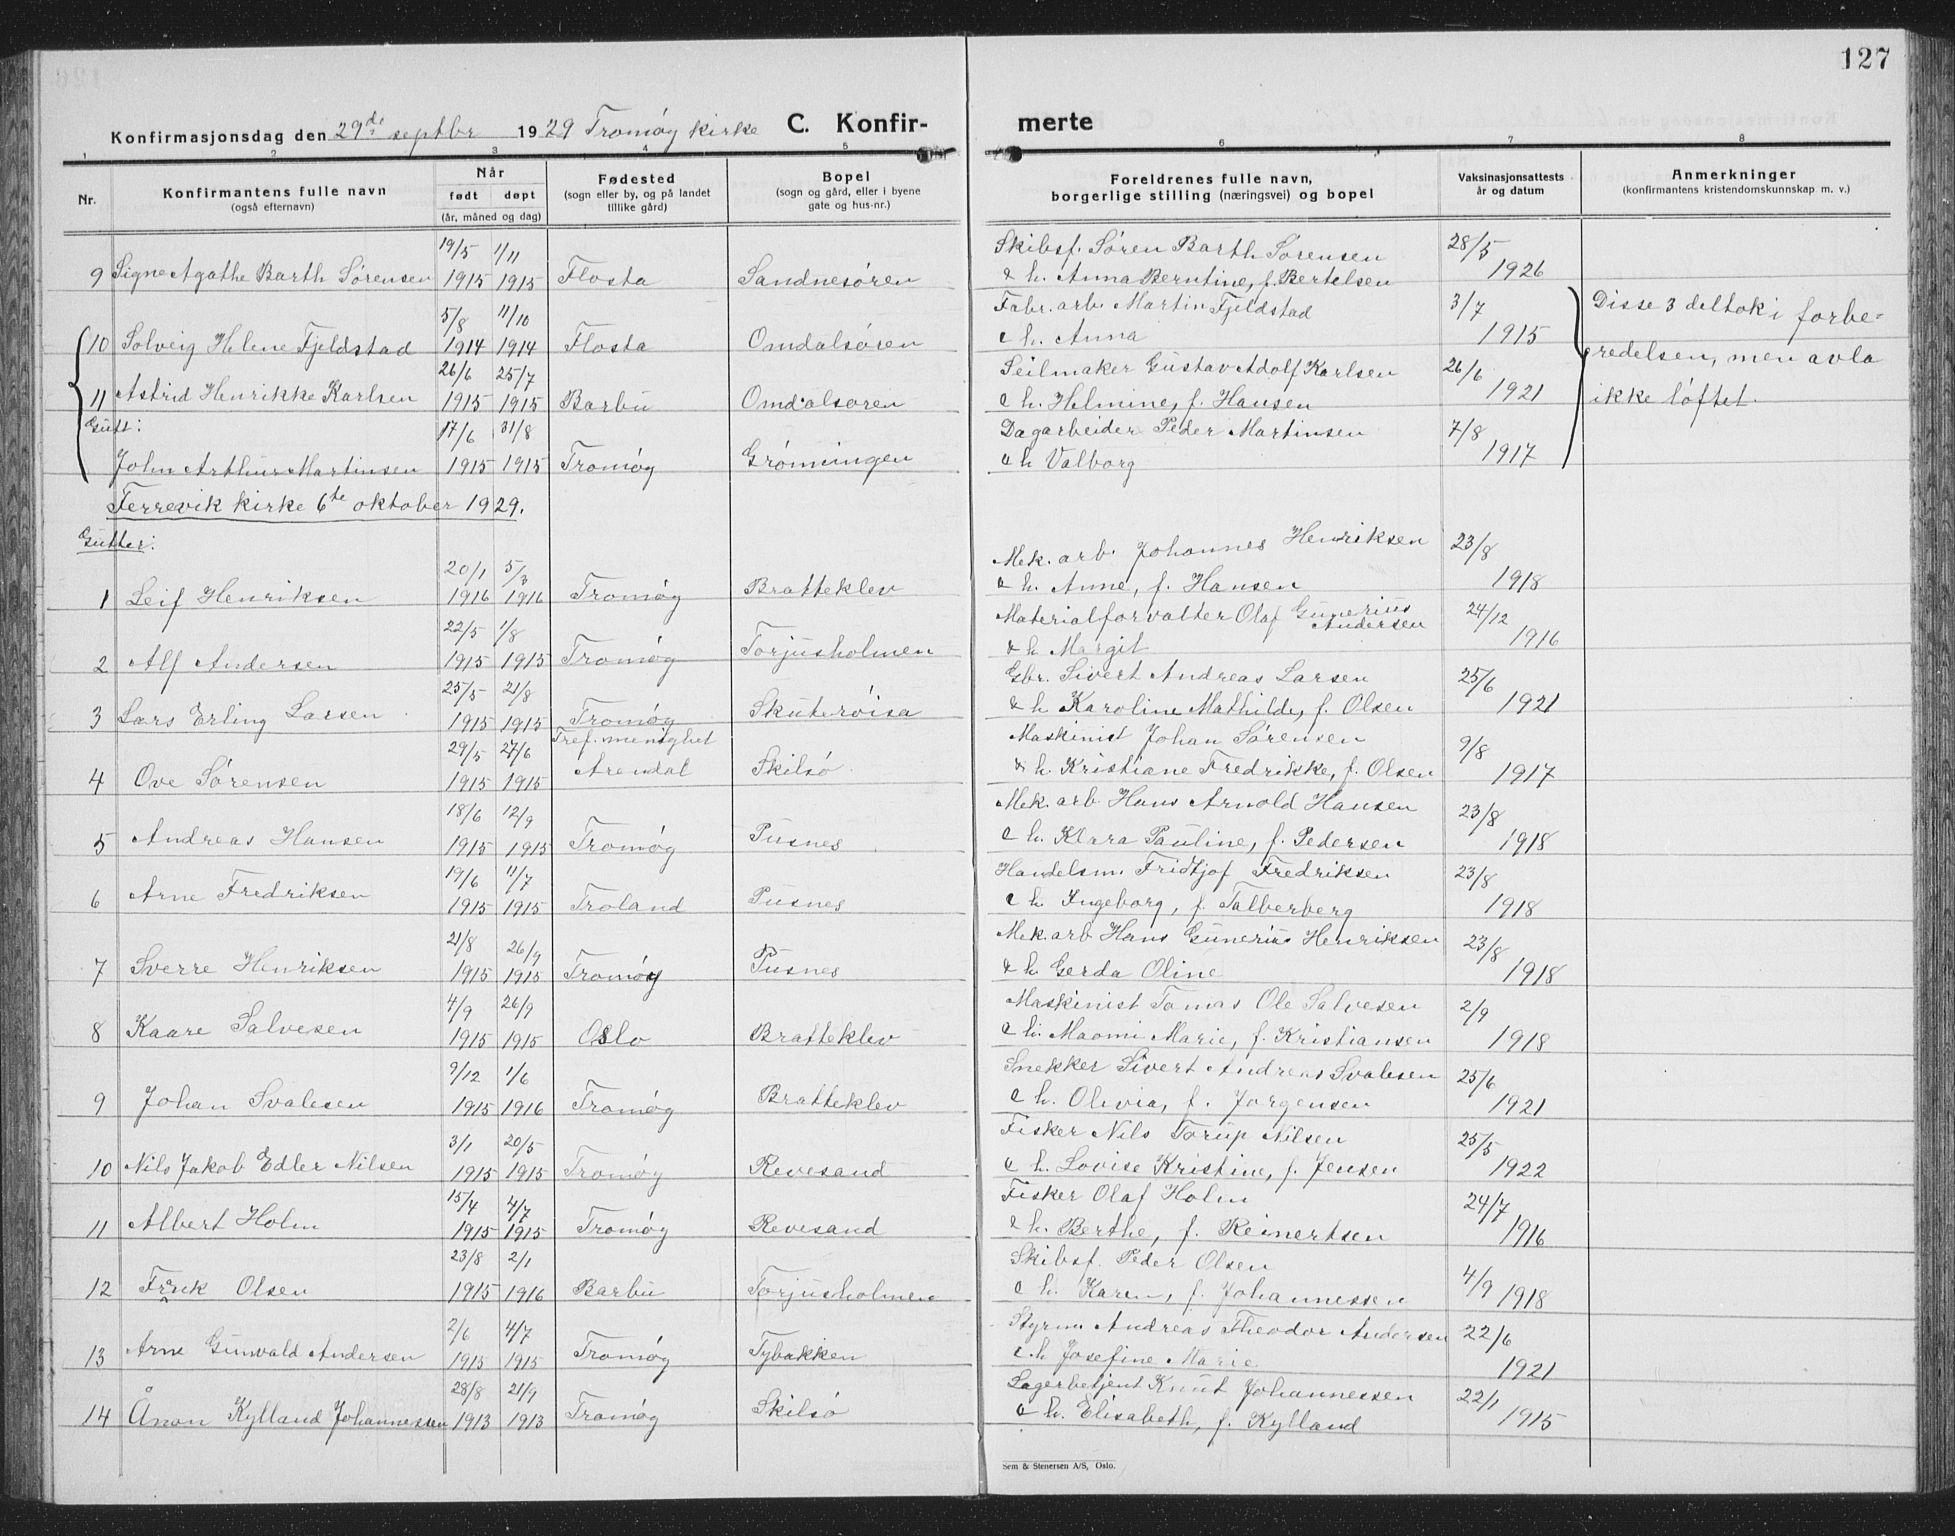 127
Konfirmasjonsdag den 29de septbr 1929 Tromøy kirke C. Konfirmerte
1 2 3 4 5 6 7 8
Nr. Konfirmantens fulle navn (også efternavn) Når født døpt (år, måned og dag) Fødested (sogn eller by, og på landet tillike gård) Bopel (sogn og gård, eller i byene gate og hus-nr.) Foreldrenes fulle navn, borgerlige stilling (næringsvei) og bopel Vaksinasjonsattests år og datum Anmerkninger (konfirmantens kristendomskunnskap m. v.)
19/5 1/11 Skibsf. Søren Barth Sørensen 28/5
9 Signe Agathe Barth Sørensen 1915 1915 Flosta Sandnesøren & h. Anna Berntine, f. Bertelsen 1926
5/8 11/10 Fabr. arb. Martin Fjeldstad 3/7 Disse 3 deltok i forbe-
10 Solveig Helene Fjeldstad 1914 1914 Flosta Omdalsøren & h. Anna 1915 redelsen, men avla
26/6 25/7 Seilmaker Gustav Adolf Karlsen 26/6
11 Astrid Henrikke Karlsen 1915 1915 Barbu Omdalsøren & h. Helmine, f. Hansen 1921 ikke løftet.
Gutt: 17/6 31/8 Dagarbeider Peder Martinsen 7/8
John Arthur Martinsen 1915 1915 Tromøy Grømningen & h. Valborg 1917
Færrevik kirke 6te oktober 1929.
Gutter:
20/1 5/3 Mek. arb. Johannes Henriksen 23/8
1 Leif Henriksen 1916 1916 Tromøy Bratteklev & h. Anne, f. Hansen 1918
22/5 1/8 Materialforvalter Olaf Gunerius Andersen 24/12
2 Alf Andersen 1915 1915 Tromøy Torjusholmen & h. Margit 1916
25/5 21/8 Gbr. Sivert Andreas Larsen 25/6
3 Lars Erling Larsen 1915 1915 Tromøy Skutevisa & h. Karoline Mathilde, f. Olsen 1921
29/5 27/6 Tref. menighet Maskinist Johan Sørensen 9/8
4 Ove Sørensen 1915 1915 Arendal Skilsø & h. Kristiane Fredrikke, f. Olsen 1917
18/6 12/9 Mek. arb Hans Arnold Hansen 23/8
5 Andreas Hansen 1915 1915 Tromøy Pusnes & h. Klara Pauline, f. Pedersen 1918
19/6 11/7 Handelsm. Fridtjof Fredriksen 23/8
6 Arne Fredriksen 1915 1915 Froland Pusnes & h. Ingeborg, f. Talberberg 1918
21/8 26/9 Mek. arb Hans Gunerius Henriksen 23/8
7 Sverre Henriksen 1915 1915 Tromøy Pusnes & h. Gerda Oline 1918
4/9 26/9 Maskinist Tomas Ole Salvesen 2/9
8 Kaare Salvesen 1915 1915 Oslo Bratteklev & h. Maomi Marie, f. Kristiansen 1918
9/12 1/6 Snekker Sivert Andreas Svalesen 25/6
9 Johan Svalesen 1915 1916 Tromøy Bratteklev & h. Olivia, f. Jørgensen 1921
3/1 20/5 Fisker Nils Torup Nilsen 25/5
10 Nils Jakob Edler Nilsen 1915 1915 Tromøy Revesand & h. Lovise Kristine, f. Jensen 1922
15/4 4/7 Fisker Olaf Holm 24/7
11 Albert Holm 1915 1915 Tromøy Revesand & h. Berthe, f. Reinertsen 1916
23/8 2/1 Skibsf. Peder Olsen 4/9
12 Olsen 1915 1916 Barbu Torjusholmen & h. Karen, f. Johannessen 1918
2/6 4/7 Styrm. Andreas Theodor Andersen 22/6
13 Arne Gunvald Andersen 1915 1915 Tromøy Tybakken & h. Josefine Marie 1921
28/8 21/9 Lagerbetjent Knut Johannessen 22/1
14 Ånon Kylland Johannessen 1913 1913 Tromøy Skilsø & h. Elisabeth, f. Kylland 1915
Sem & Stenersen A/S, Oslo.